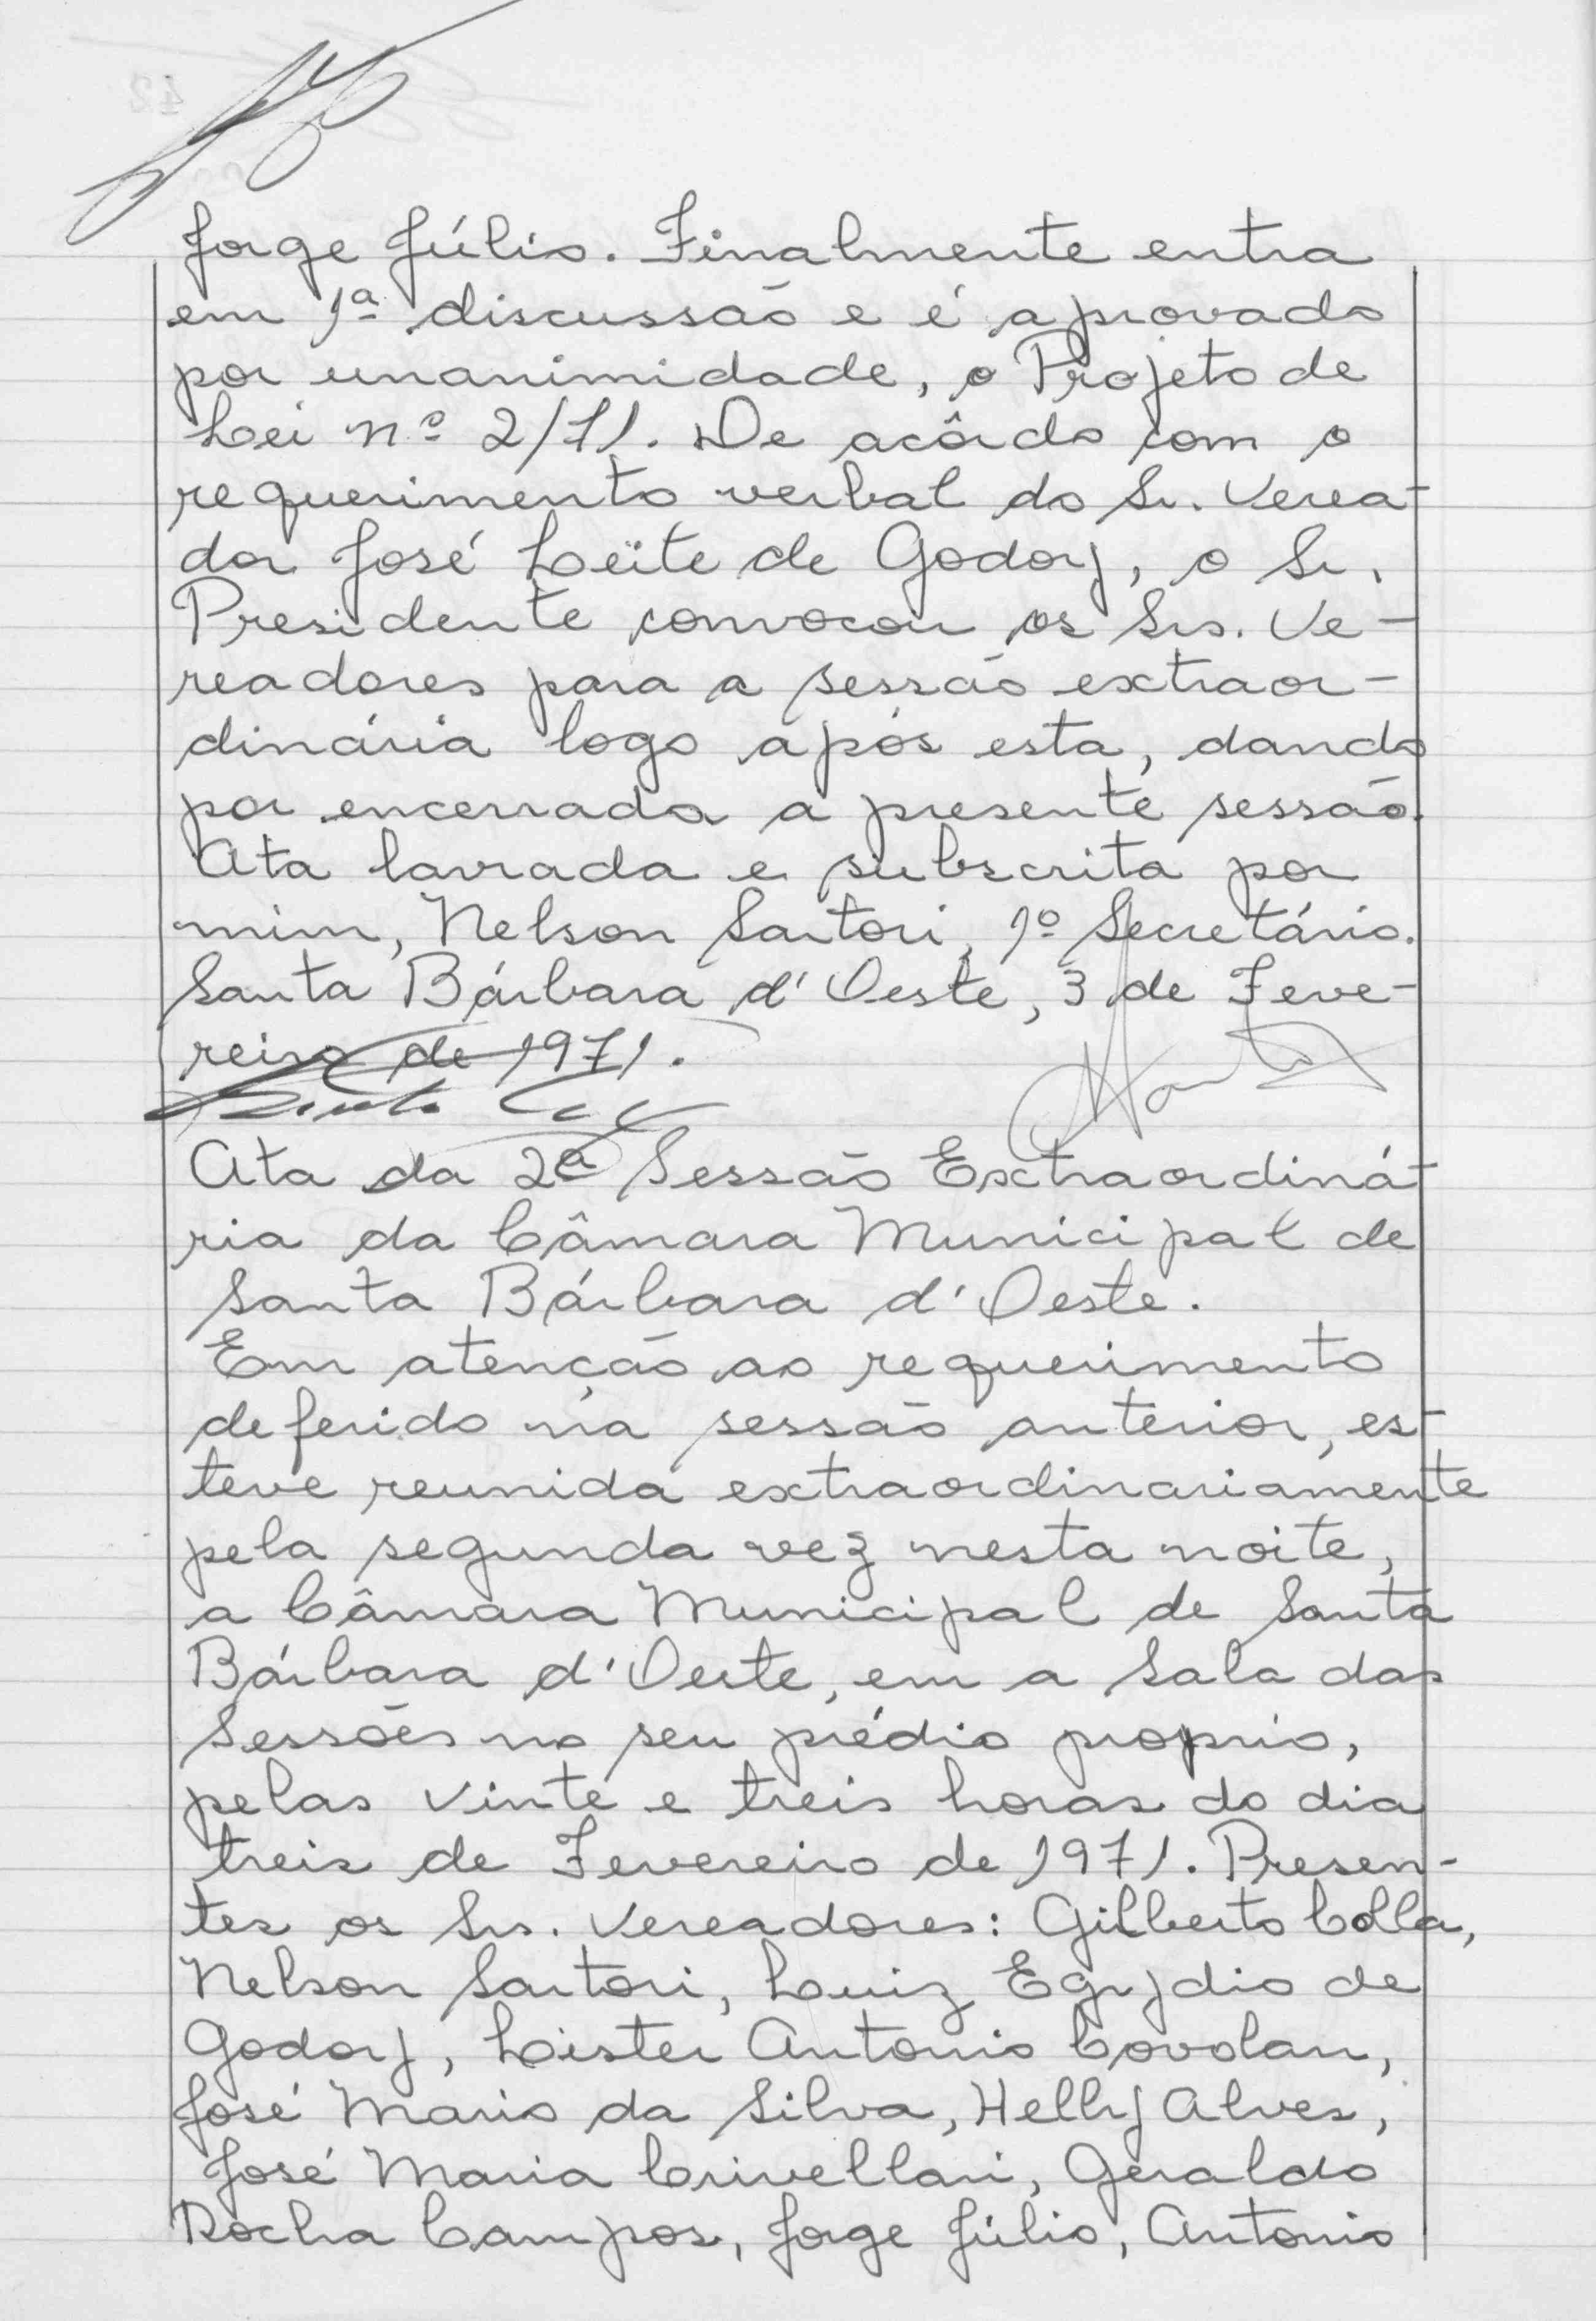 Jorge Júlio. Finalmente entra
em 1ª discussão e é aprovado
por unanimidade, o Projeto de
Lei nº 2/71. De acôrdo com o
requerimento verbal do Sr. Verea-
dor José Leite de Godoy, o Sr.
Presidente convocou os Srs. Ve-
readores para a sessão extraor-
dinária logo após esta, dando
por encerrada a presente sessão.
Ata lavrada e subscrita por
mim, Nelson Sartori, 1º Secretário.
Santa Bárbara d'Oeste, 3 de Feve-
reiro de 1971.
Ata da 2ª Sessão Extraordiná-
ria da Câmara Municipal de
Santa Bárbara d'Oeste.
Em atenção ao requerimento
deferido na sessão anterior, es-
teve reunida extraordinariamente
pela segunda vez nesta noite,
a Câmara Municipal de Santa
Bárbara d'Oeste, em a Sala das
Sessões no seu prédio proprio,
pelas vinte e treis horas do dia
treis de Fevereiro de 1971. Presen-
tes os Srs. Vereadores: Gilberto Colla,
Nelson Sartori, Luiz Egydio de
Godoy, Lister Antonio Covolan,
José Mario da Silva, Helly Alves,
José Maria Crivellari, Geraldo
Rocha Campos, Jorge Júlio, Antonio